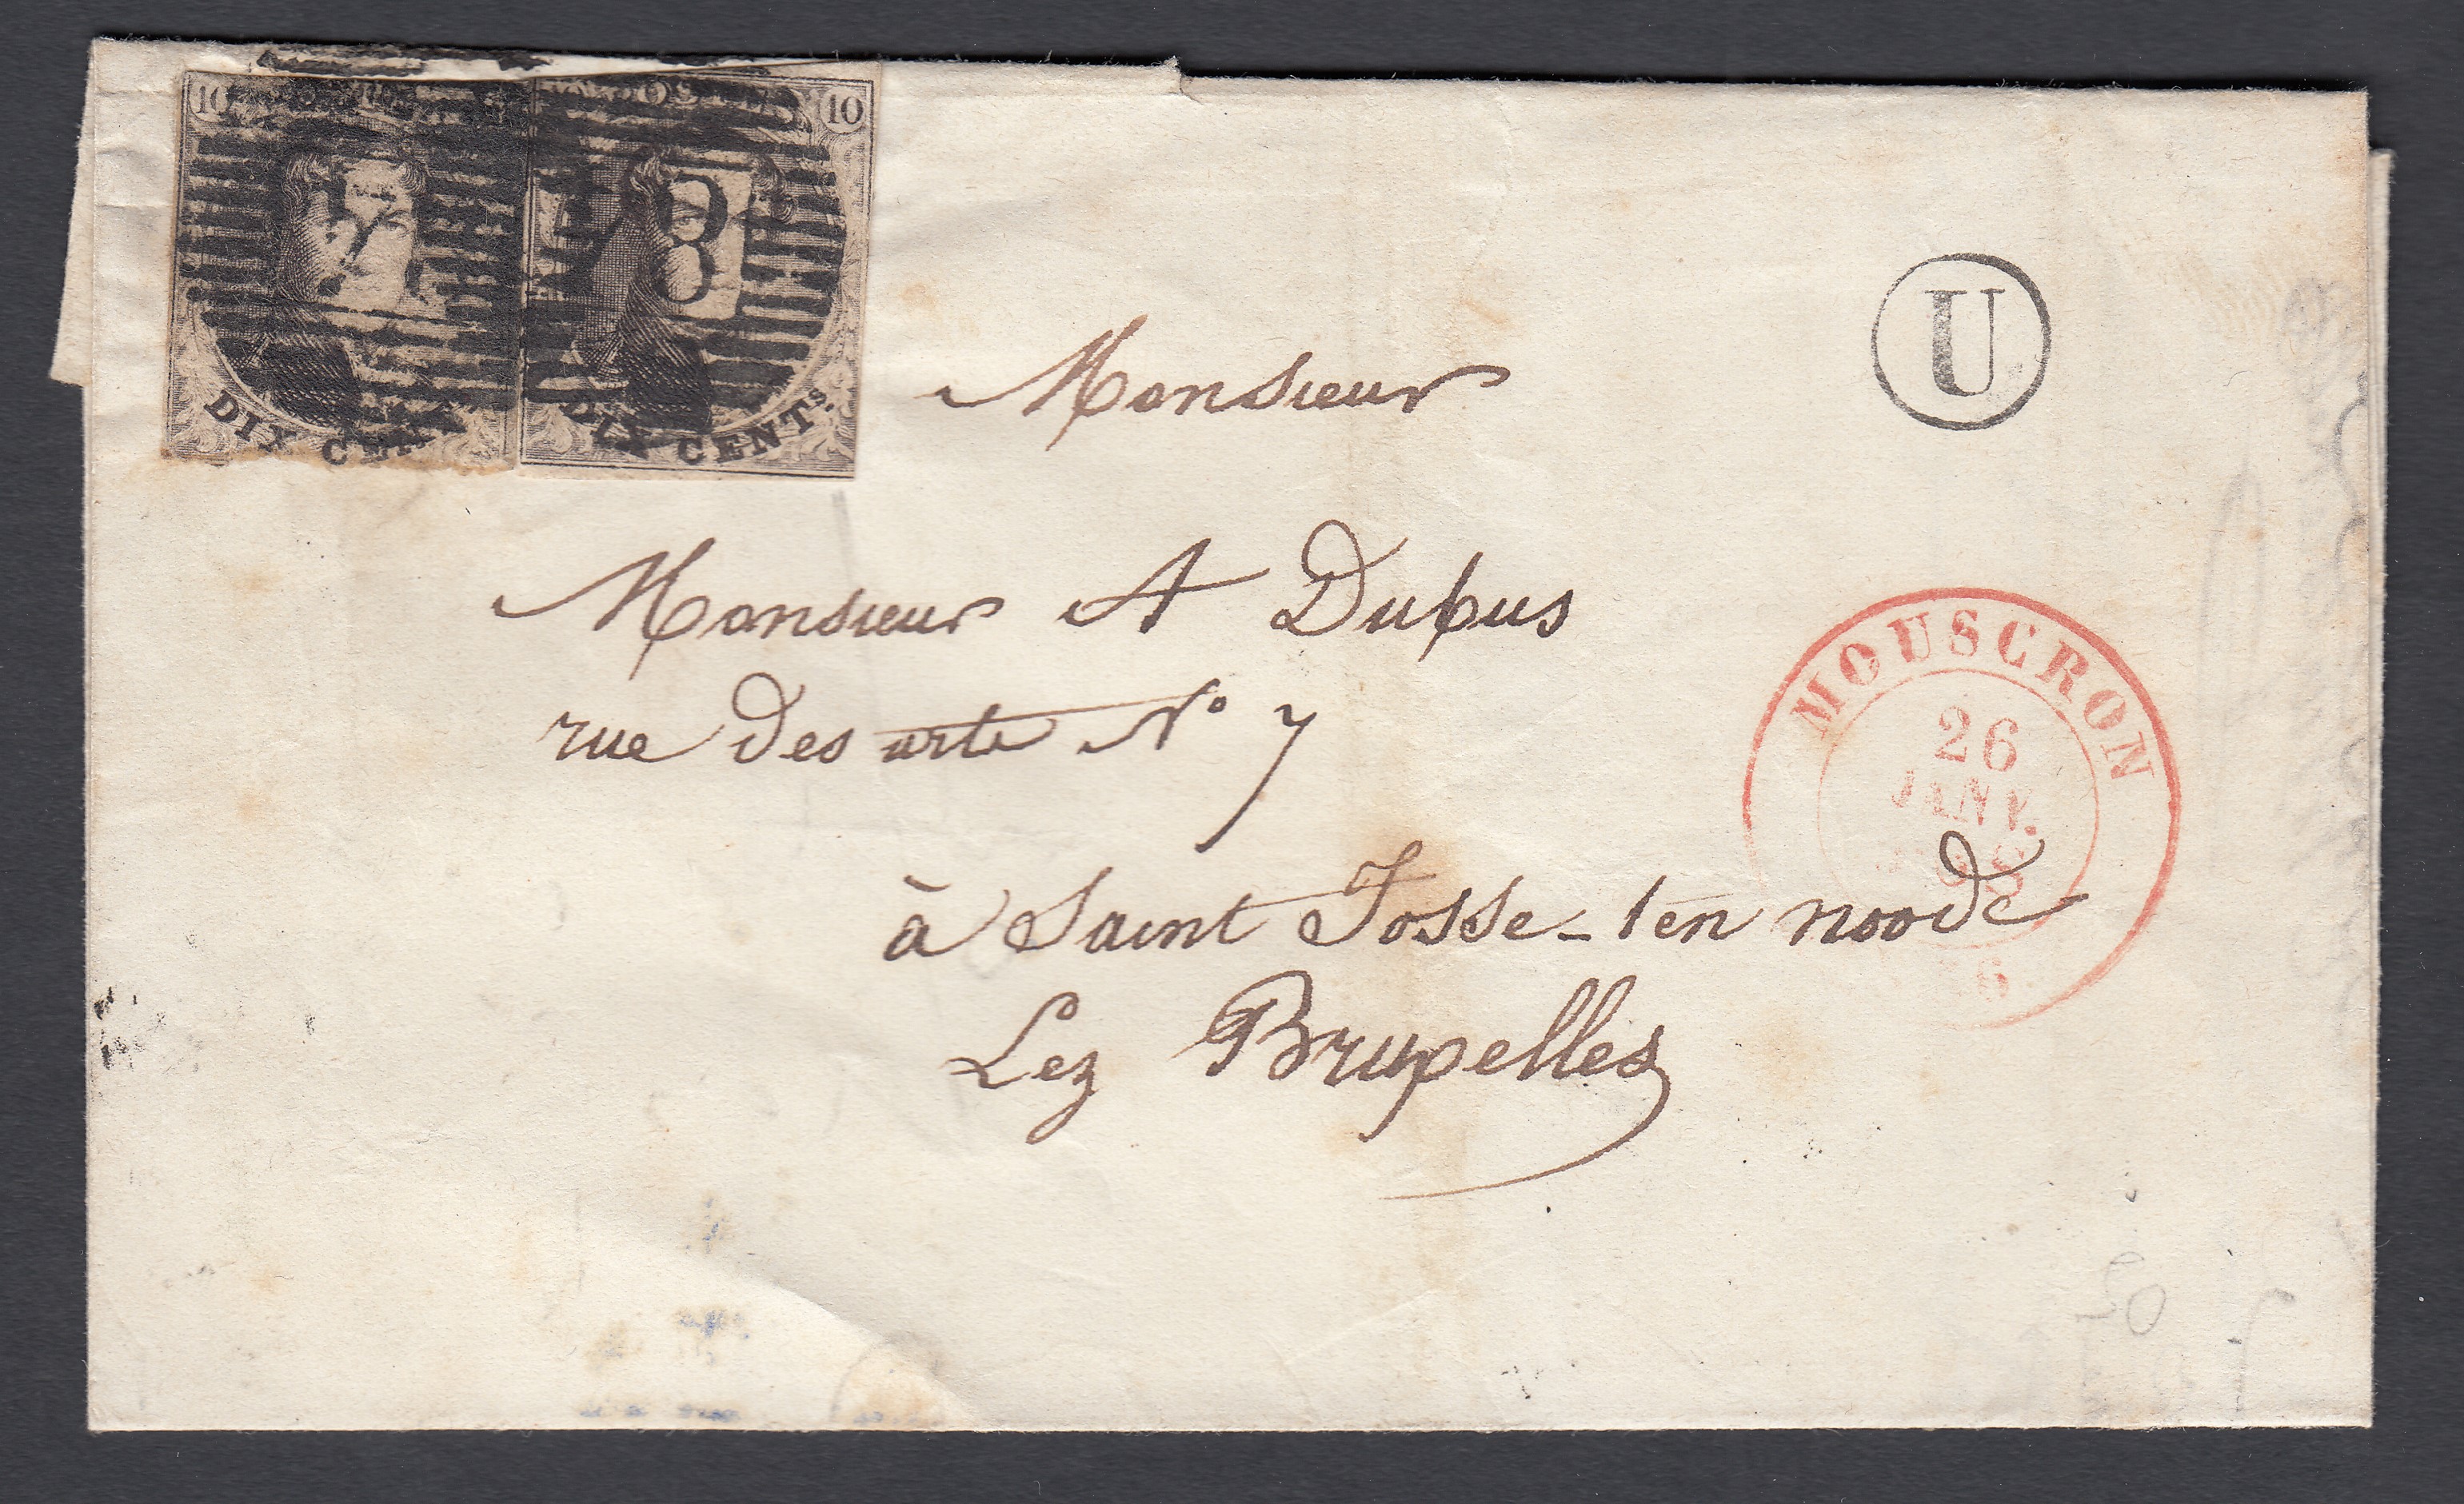 10 10
8
DIX CENTS.
DIX CENTS.
U
Monsieur
Monsieur A Dubus
rue des arts No 7
à Saint Josse-ten noode
Lez Bruxelles
MOUSCRON
26
JANV.